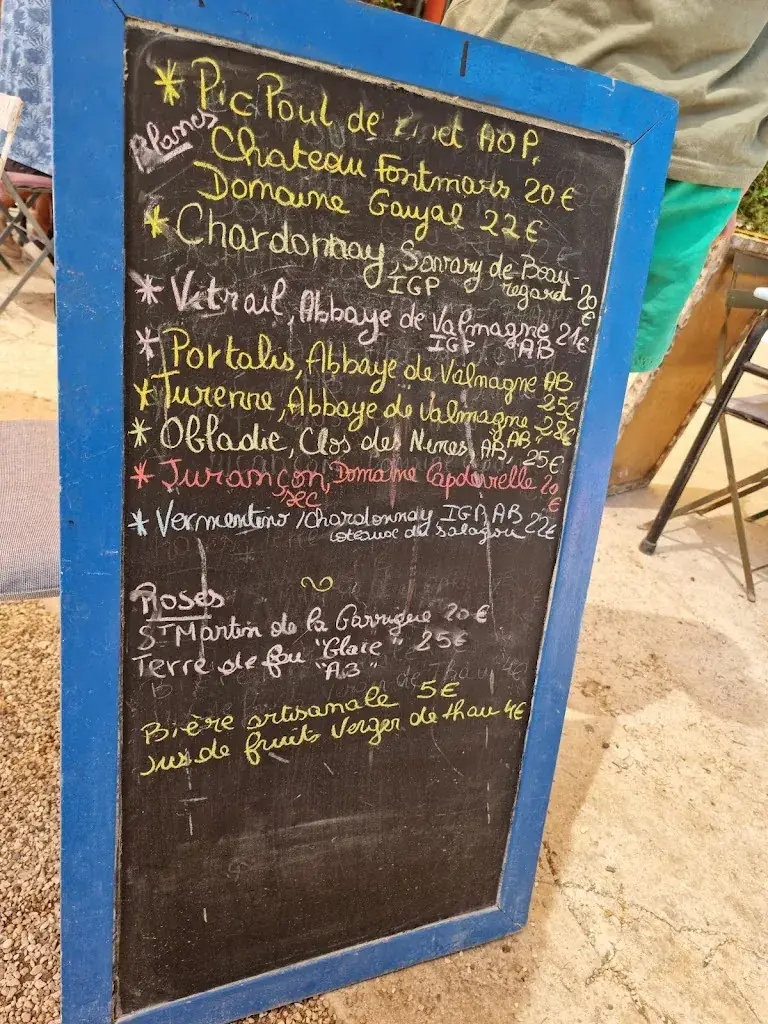 * Pic Poul de Pinet AOP,
Blancs
Chateau Fontmars 20 €
Domaine Gaujal 22 €
* Chardonnay, Savary de Beau-
IGP regard 20 €
* Vitrail, Abbaye de Valmagne 21 €
IGP AB
* Portalis, Abbaye de Valmagne AB
25 €
* Turenne, Abbaye de Valmagne 28 €
"AB"
* Obladie, Clos des Nines, AB, 25 €
* Jurançon, Domaine Capdevielle 20 €
sec
* Vermentino / Chardonnay IGP AB 22 €
coteaux du Salagou
Rosés
St Martin de la Garrigue 20 €
Terre de feu "Glaie" 25 €
"AB"
Bière artisanale 5 €
Jus de fruits Verger de thau 4 €